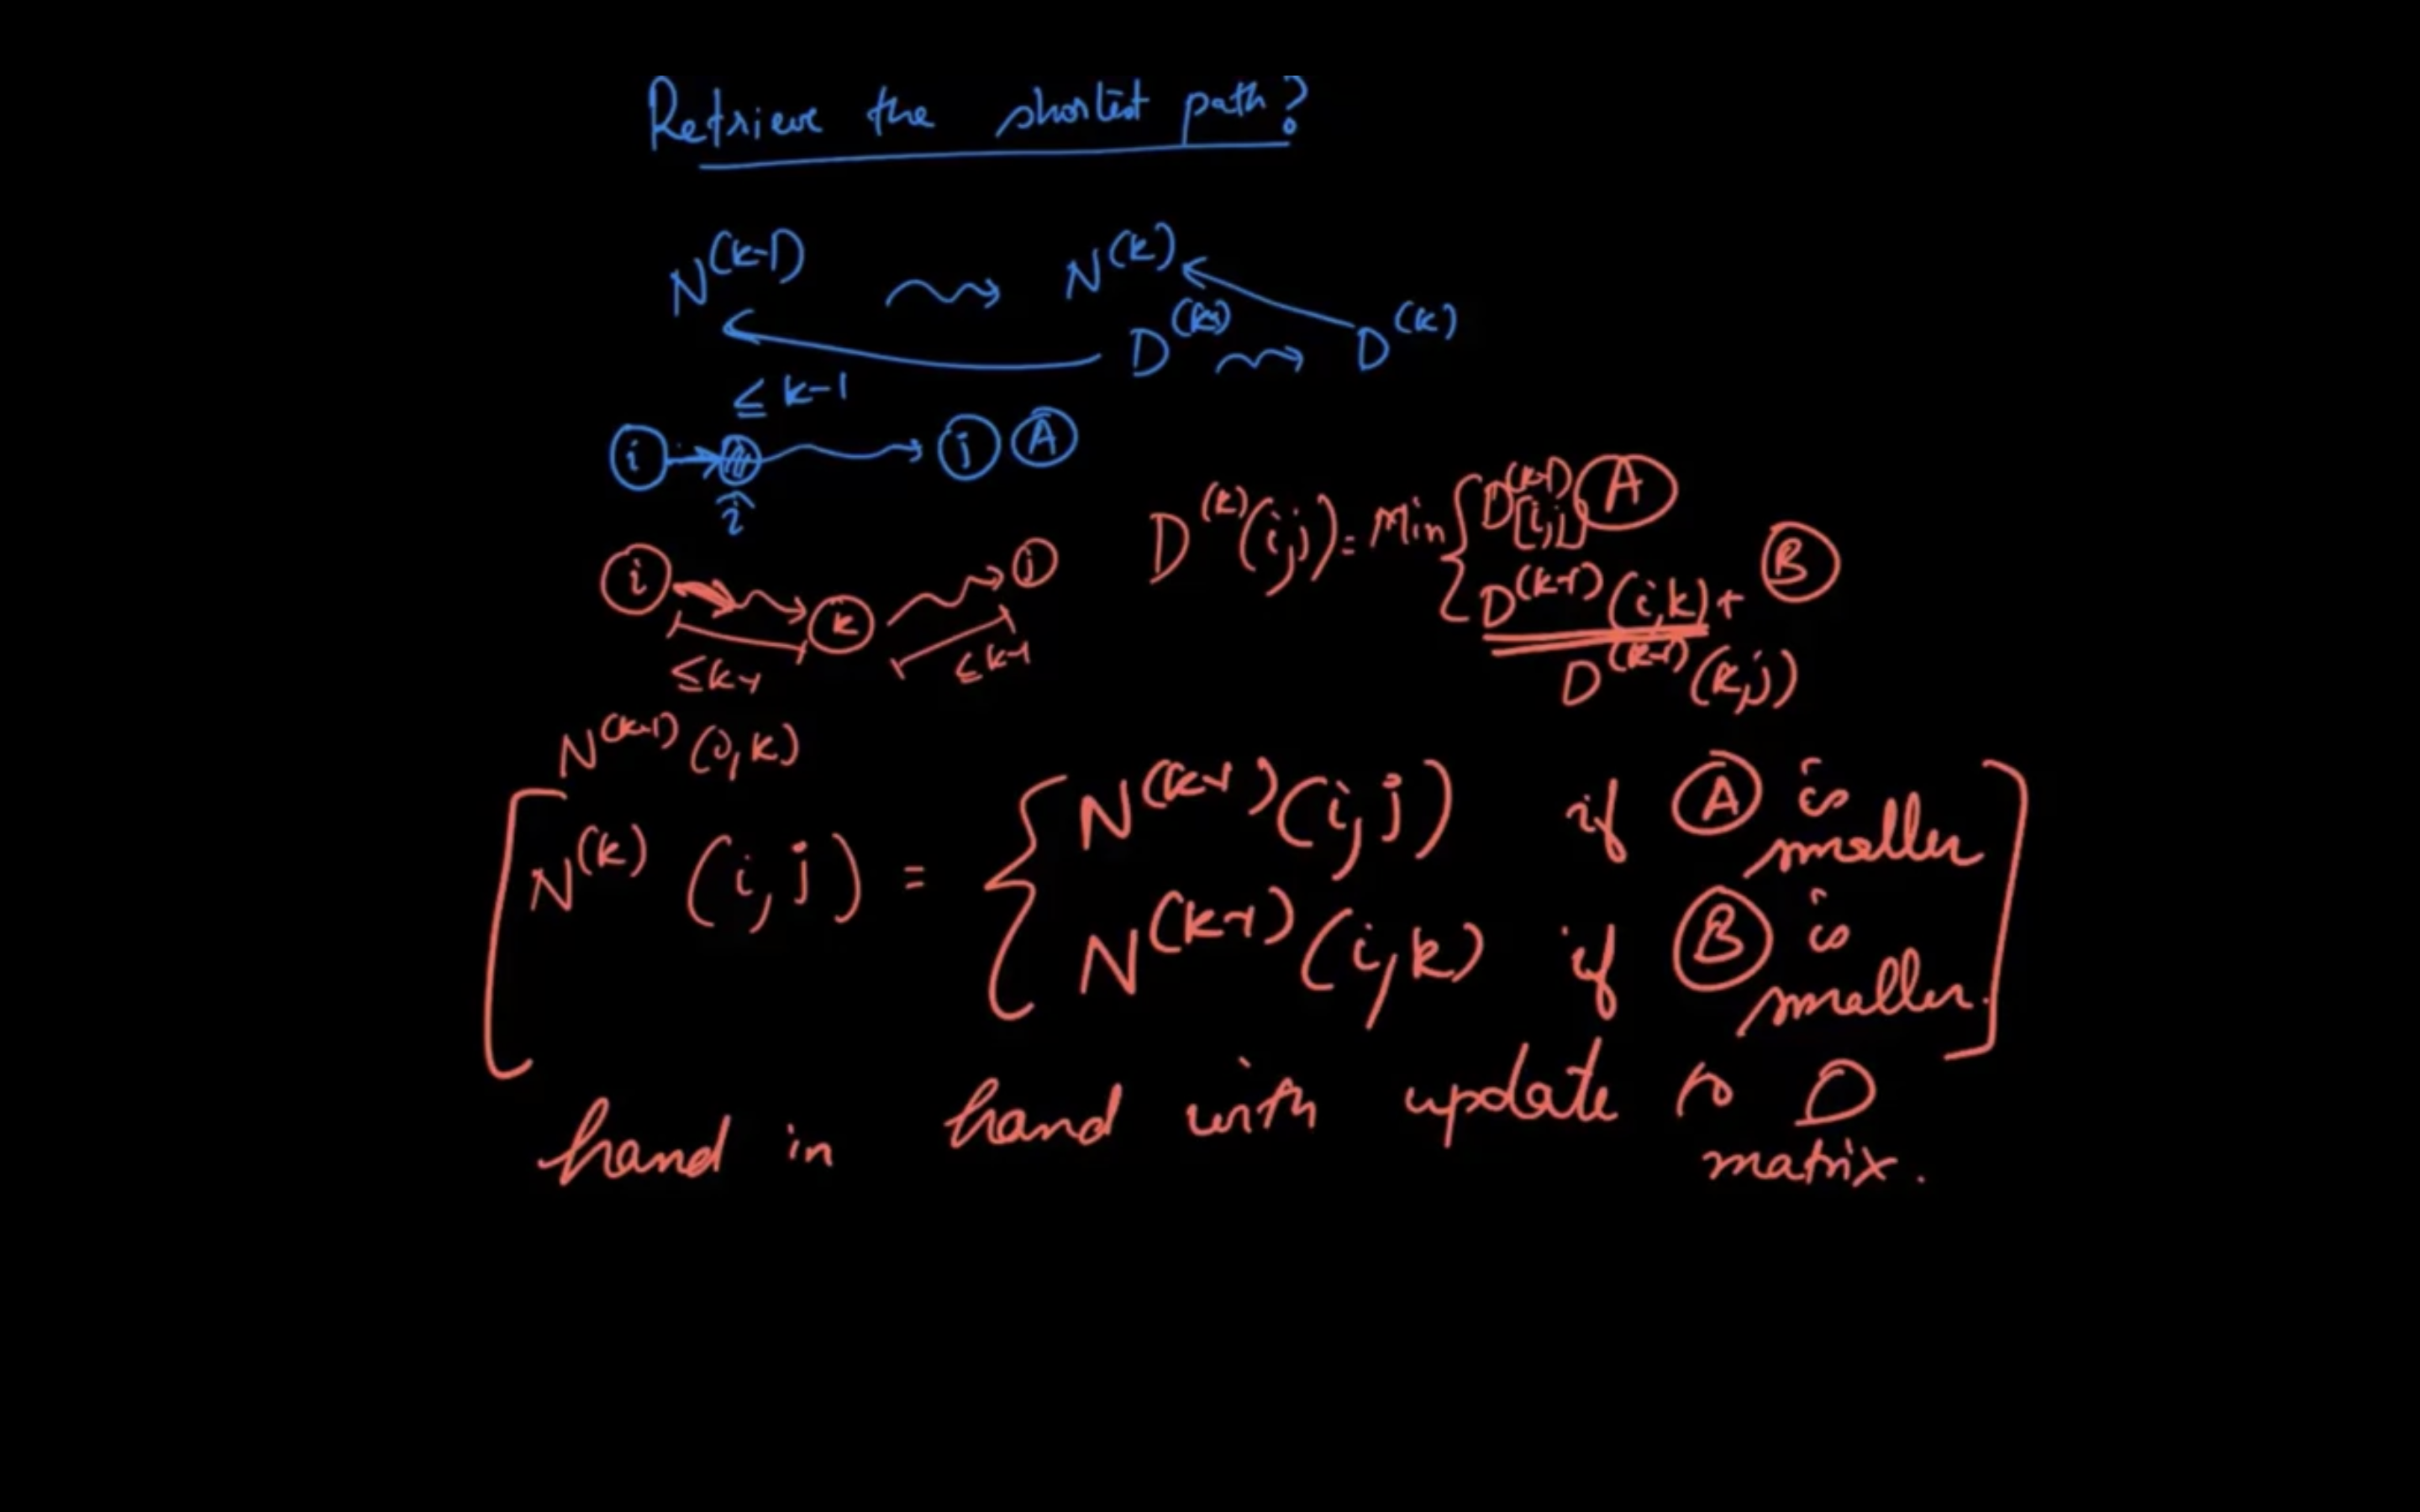 Retrieve the shortest path?
N^(k-1) ⇝ N^(k)
D^(k-1) ⇝ D^(k)
≤ k-1
i j A
î
D^(k)(i,j) = Min { D^(k-1)[i,j] A
D^(k-1)(i,k) + B
D^(k-1)(k,j)
i k j
≤k-1 ≤k-1
N^(k-1)(i,k)
N^(k)(i,j) = { N^(k-1)(i,j) if A is smaller
N^(k-1)(i,k) if B is smaller.
hand in hand with update to D
matrix.